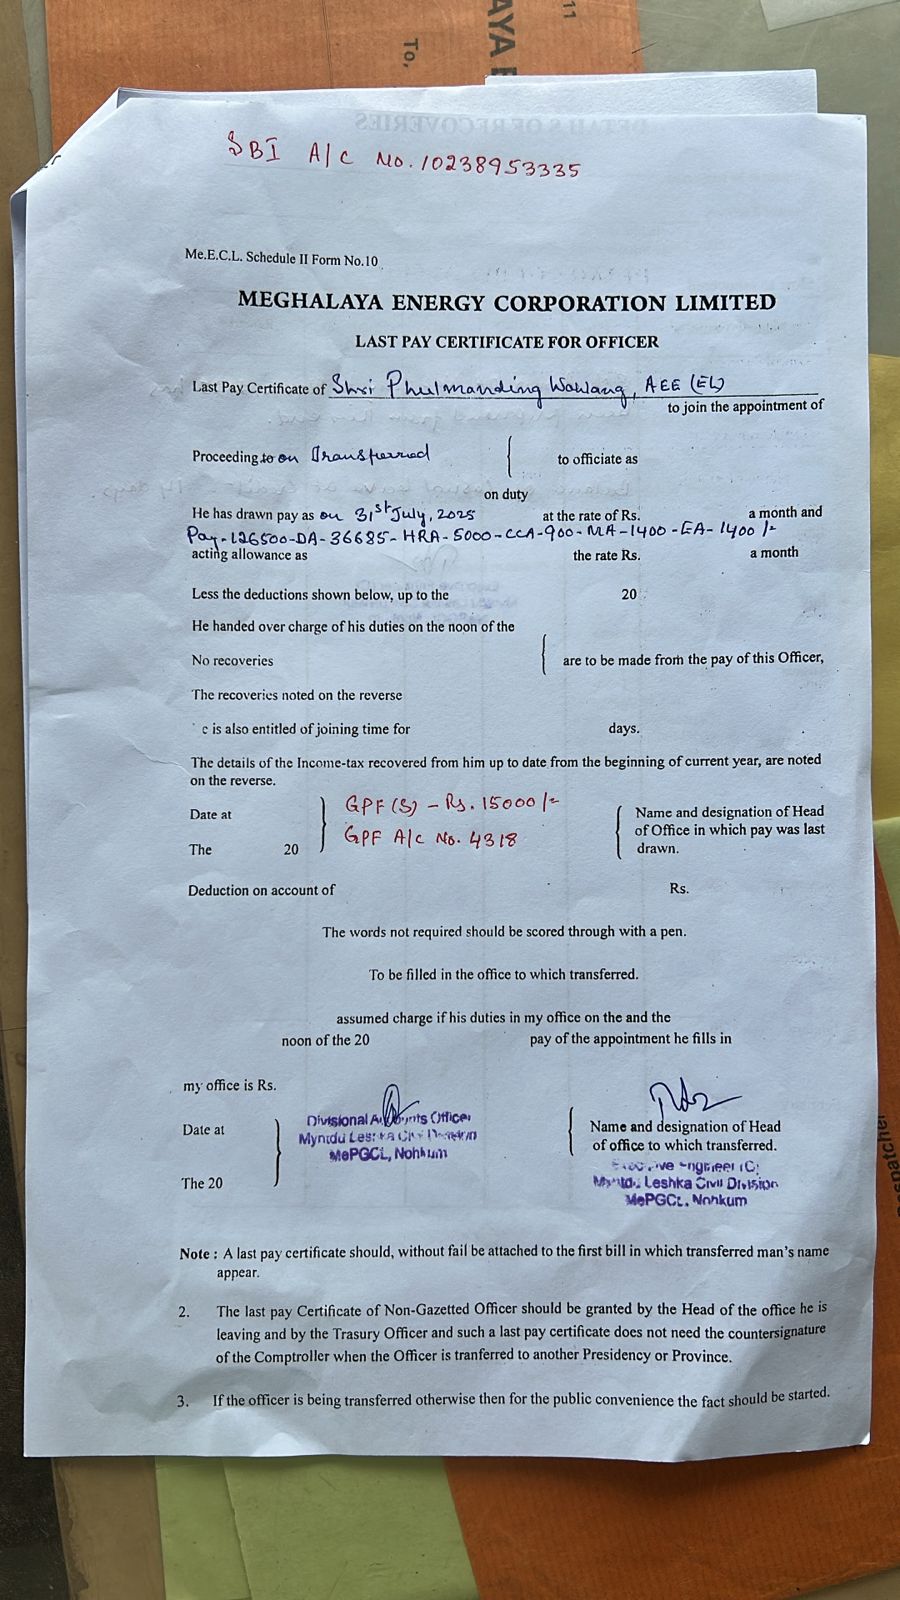 11
AYA E
To,
DETAILS OF RECOVERIES
SBI A/C No. 10238953335
Me.E.C.L. Schedule II Form No.10
MEGHALAYA ENERGY CORPORATION LIMITED
LAST PAY CERTIFICATE FOR OFFICER
Last Pay Certificate of Shri Phulmanding Wahlang, AEE (EL)
to join the appointment of
Proceeding to on Transferred
to officiate as
on duty
He has drawn pay as on 31st July, 2025 at the rate of Rs. a month and
Pay-126500-DA-36685-HRA-5000-CCA-900-MA-1400-EA-1400/-
acting allowance as the rate Rs. a month
Less the deductions shown below, up to the 20
He handed over charge of his duties on the noon of the
No recoveries are to be made from the pay of this Officer,
The recoveries noted on the reverse
e is also entitled of joining time for days.
The details of the Income-tax recovered from him up to date from the beginning of current year, are noted
on the reverse.
GPF (S) - Rs. 15000/-
Date at Name and designation of Head
of Office in which pay was last
GPF A/C No. 4318
The 20 drawn.
Deduction on account of Rs.
The words not required should be scored through with a pen.
To be filled in the office to which transferred.
assumed charge if his duties in my office on the and the
noon of the 20 pay of the appointment he fills in
my office is Rs.
Divisional Accounts Officer
Date at Name and designation of Head
Myntdu Leshka Civil Division of office to which transferred.
MePGCL, Nohkum
Executive Engineer (C)
The 20 Myntdu Leshka Civil Division
MePGCL, Nohkum
Note : A last pay certificate should, without fail be attached to the first bill in which transferred man's name
appear.
2. The last pay Certificate of Non-Gazetted Officer should be granted by the Head of the office he is
leaving and by the Trasury Officer and such a last pay certificate does not need the countersignature
of the Comptroller when the Officer is tranferred to another Presidency or Province.
3. If the officer is being transferred otherwise then for the public convenience the fact should be started.
espatcher